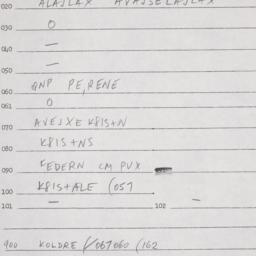 020 ALAJLAX AVAJSELAJLAX
030 O
040 —
050 —
060 GNP PE,RENE
061 O
070 AVEJXE K8IS+N
080 K8IS+NS
090 FEDERN CM PVX
100 K8IS+ALE (057
101 — 102 —
900 KOLDRE (067060 (162